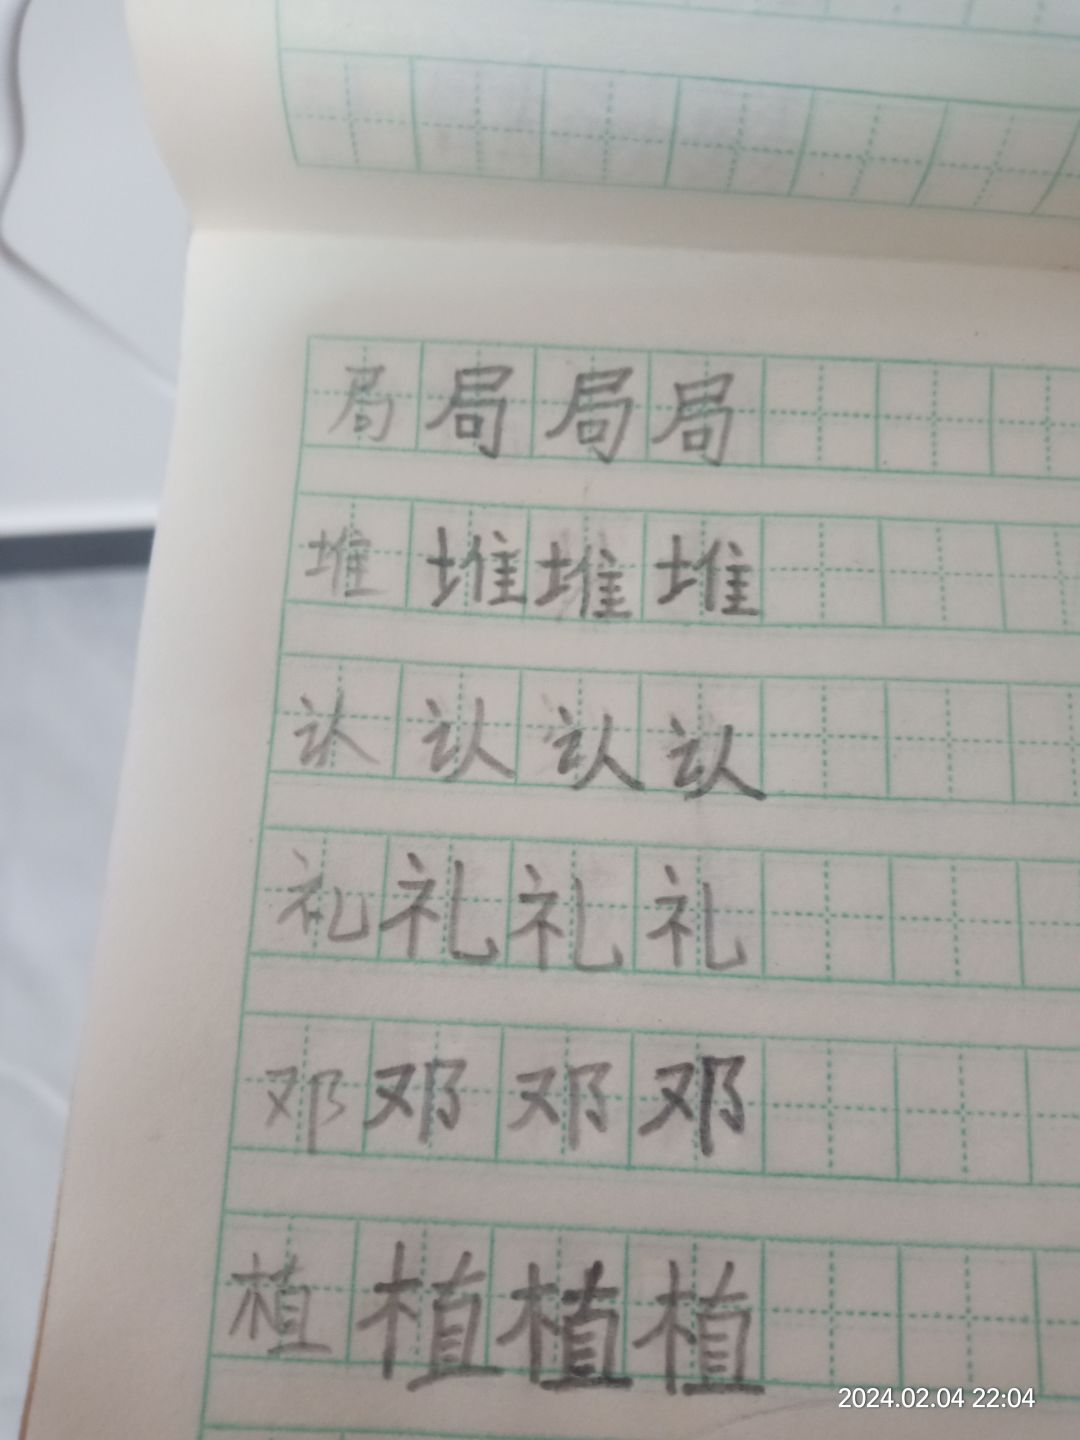 局局局局
堆堆堆堆
认认认认
礼礼礼礼
邓邓邓邓
植植植植
2024.02.04 22:04